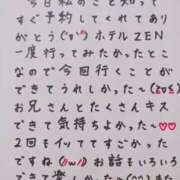 今日私のこと知って
すぐ予約してくれてあり
がとう(°▽°)ホテルZEN
一度行ってみたかったとこ
なので今回行くことが
できて嬉しかった〜(≧o≦)
お兄さんとたくさんキス
できて気持ちよかった〜♡♡
2回もイッててすごかった
ですね(//ω//)お話もいろいろ
できて楽しかった